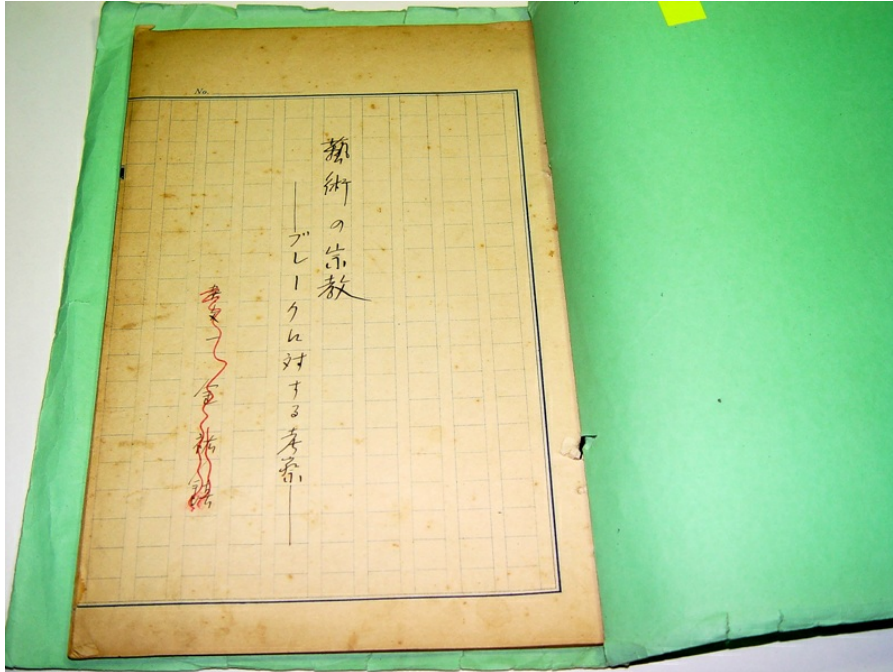 No.
藝術の宗教
——ブレークに対する考察——